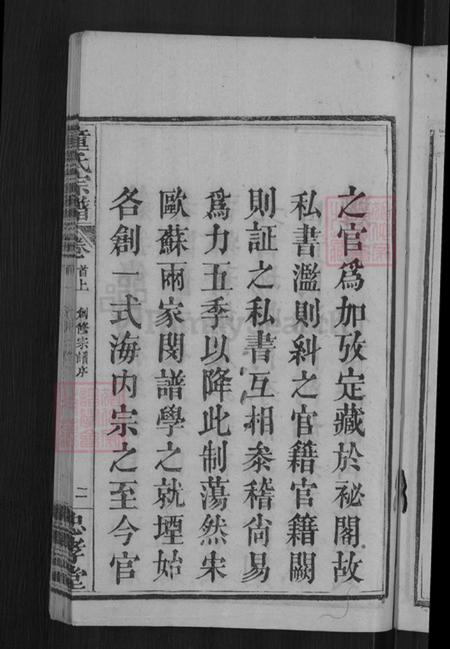 之官為加攷定藏於祕閣故
私書濫則糾之官籍官籍闕
則証之私書互相叅稽尙易
為力五季以降此制蕩然宋
歐蘇兩家閔譜學之就堙始
各創一式海內宗之至今官
童氏宗譜
卷首上
創修宗譜序
二
忠孝堂